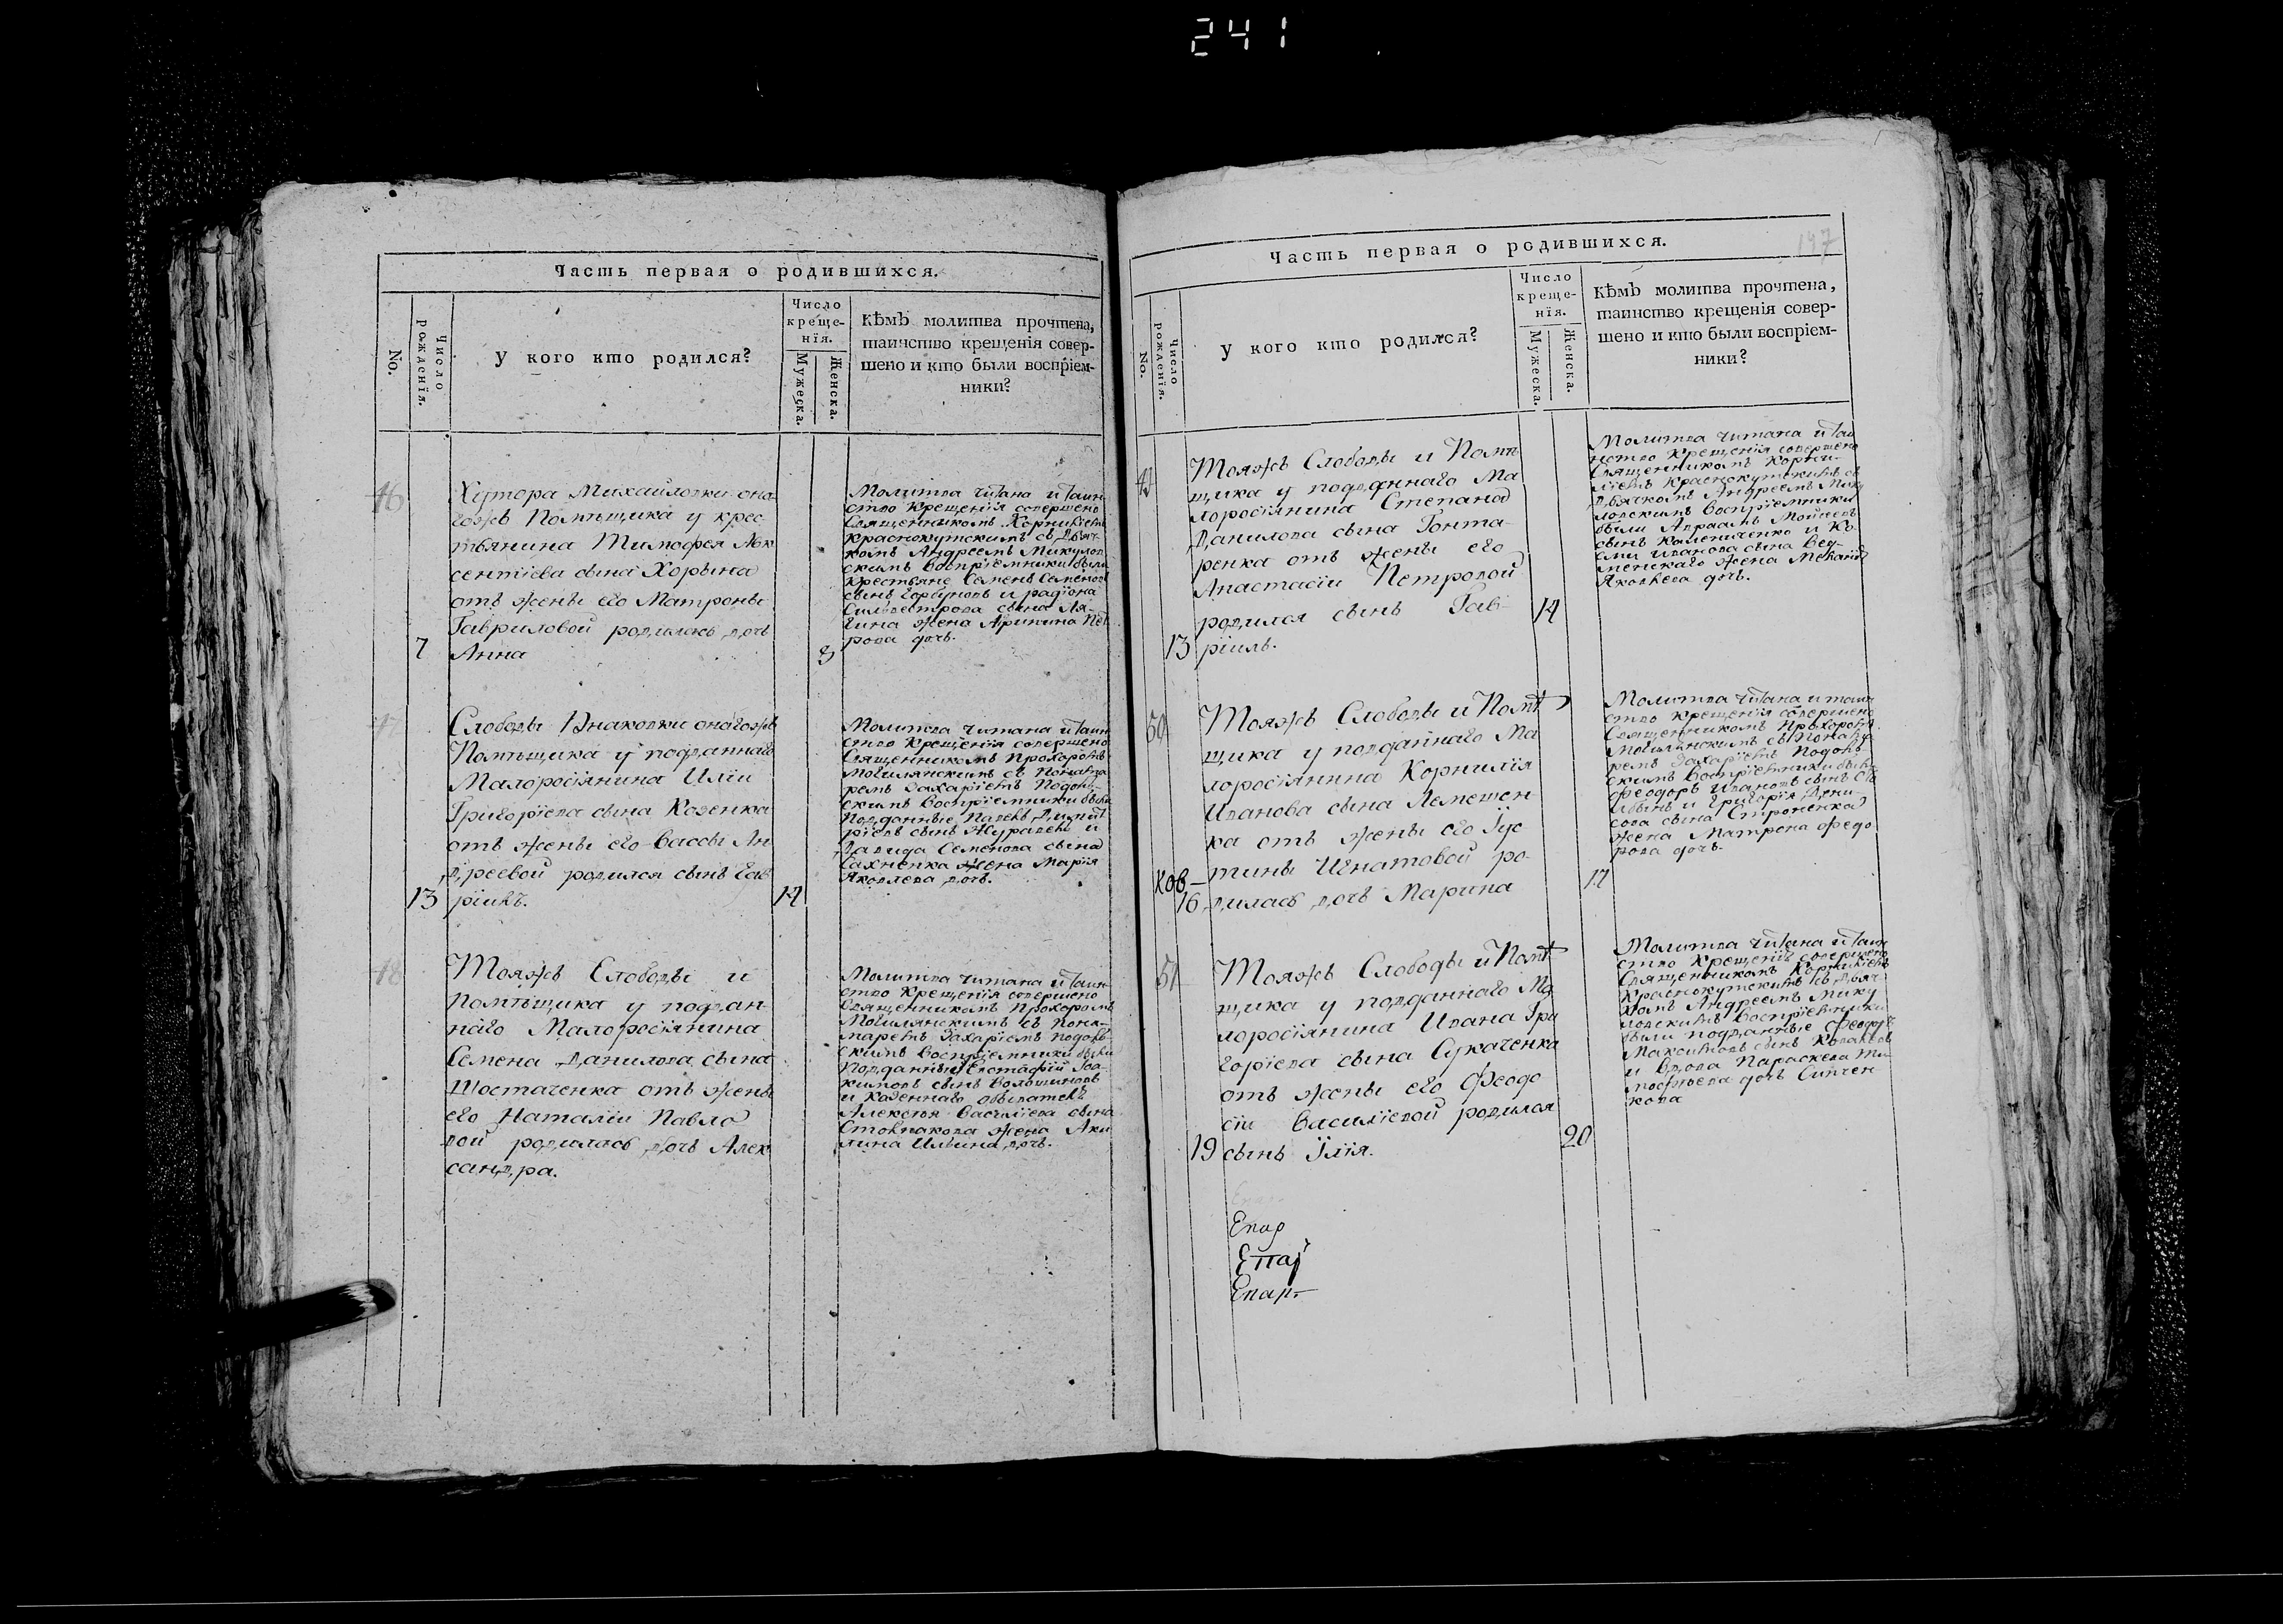 241
Часть первая о родившихся.
No.
Число рожденїя.
У кого кто родился?
Число
креще-
нїя.
Мужеска.
Женска.
Кѣмъ молитва прочтена,
таинство крещенія совер-
шено и кто были воспріем-
ники?
46
Хутора Михайловки она-
гожъ Помѣщика у крес
тьянина Тимофея Авк
сентїева сына Хорына
отъ жены его Матроны
Гавриловой родилась дочь
7
Анна
8
Молитва читана и таин
ство Крещенїя совершено
Священникомъ Корнилїемъ
Краснокутскимъ съ Дьяч
комъ Андреемъ Микулов
скимъ Воспрїемники были
Крестьяне Семенъ Семенов
сынъ Горбуновъ и Радїона
Сильвестрова сына Ля-
гина жена Арипина Пет
рова дочь.
47
Слободы Знаковки онагожъ
Помѣщика у подданнаго
Малоросїянина Илїи
Григорїева сына Козенка
отъ жены его Вассы Ан
дреевой родился сынъ Гав
13
рїилъ.
14
Молитва читана и таин
ство Крещенїя совершено
Священникомъ Прохоромъ
Могилянскимъ съ Понама
ремъ Захарїемъ Подоль-
скимъ Воспрїемники были
Подданные Павелъ Димит
рїевъ сынъ Журавель и
Давида Семенова сына
Сахненка жена Марїя
Яковлева дочь.
48
Тояжъ Слободы и
Помѣщика у поддан-
наго Малоросїянина
Семена Данилова сына
Шостаченка отъ жены
его Наталїи Павло
вой родилась дочь Алек
сандра.
Молитва читана и таин
ство Крещенїя совершено
Священникомъ Прохоромъ
Могилянскимъ съ Пона-
маремъ Захарїемъ Подоль-
скимъ Воспрїемники были
Подданный Евстафїй Iоа-
кимовъ сынъ Волошиновъ
и Казеннаго обывателя
Алексѣя Васильева сына
Стовпакова жена Аки
лина Ильина дочь.
Часть первая о родившихся.
197
No.
Число рожденїя.
У кого кто родился?
Число
креще-
нїя.
Мужеска.
Женска.
Кѣмъ молитва прочтена,
таинство крещенія совер-
шено и кто были воспріем-
ники?
49
Тояжъ Слободы и Помѣ
щика у подданнаго Ма
лоросїянина Степана
Данилова сына Гонта-
ренка отъ жены его
Анастасїи Петровой
родился сынъ Гав-
13
рїилъ.
14
Молитва читана и таи
нство Крещенїя совершено
Священникомъ Корни-
лїемъ Краснокутскимъ съ
Дьячкомъ Андреемъ Мику
ловскимъ Воспрїемники
были Авраамъ Моисеевъ
сынъ Калениченко и Ко
Ивановa сына
жена
Яковлева дочь.
50
Тояжъ Слободы и Помѣ
щика у подданнаго Ма
лоросїянина Корнилїя
Иванова сына Лемешен
ка отъ жены его Iус
тины Игнатовой ро-
ков
16
дилась дочь Марина
17
Молитва читана и таин
ство Крещенїя совершено
Священникомъ Прохоромъ
Могилянскимъ съ Понама
ремъ Захарїемъ Подоль-
скимъ Воспрїемники были
Феодоръ Ивановъ сынъ
и Григорїя Дени-
сова сына Строненка
жена Матрона Федо
рова дочь.
51
Тояжъ Слободы и Помѣ
щика у подданнаго Ма
лоросїянина Ивана Гри
горїева сына Сукаченка
отъ жены его Феодо
сїи Василїевой родился
19
сынъ Iлїя.
20
Молитва читана и таин
ство Крещенїя совершено
Священникомъ Корнилїемъ
Краснокутскимъ съ Дьяч
комъ Андреемъ Мику
ловскимъ Воспрїемники
были подданные Феодоръ
Максимовъ сынъ Ковалевъ
и вдова Параскева Ти
мофѣева дочь Ситчен-
кова
Епар
Епар
Епар
Епар.